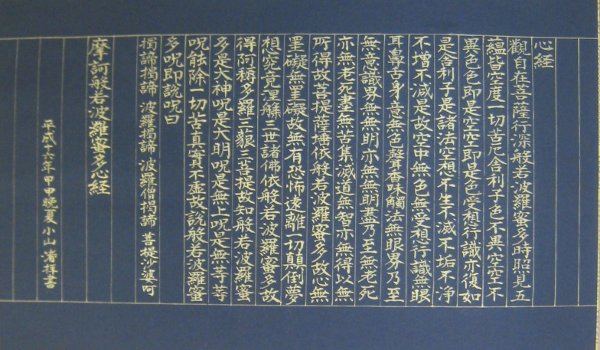 心経
觀自在菩薩行深般若波羅蜜多時照見五
蘊皆空度一切苦厄舎利子色不異空空不
異色色即是空空即是色受想行識亦復如
是舎利子是諸法空想不生不滅不垢不浄
不増不減是故空中無色無受想行識無眼
耳鼻舌身意無色聲香味觸法無眼界乃至
無意識界無無明亦無無明盡乃至無老死
亦無老死盡無苦集滅道無智亦無得以無
所得故菩提薩埵依般若波羅蜜多故心無
罣礙無罣礙故無有恐怖遠離一切顛倒夢
想究竟涅槃三世諸佛依般若波羅蜜多故
得阿耨多羅三藐三菩提故知般若波羅蜜
多是大神呪是大明呪是無上呪是無等等
呪能除一切苦真實不虚故説般若波羅蜜
多呪即説呪曰
掲諦掲諦 波羅掲諦 波羅僧掲諦 菩提沙婆呵
摩訶般若波羅蜜多心経
平成十六年甲申晩夏 小山